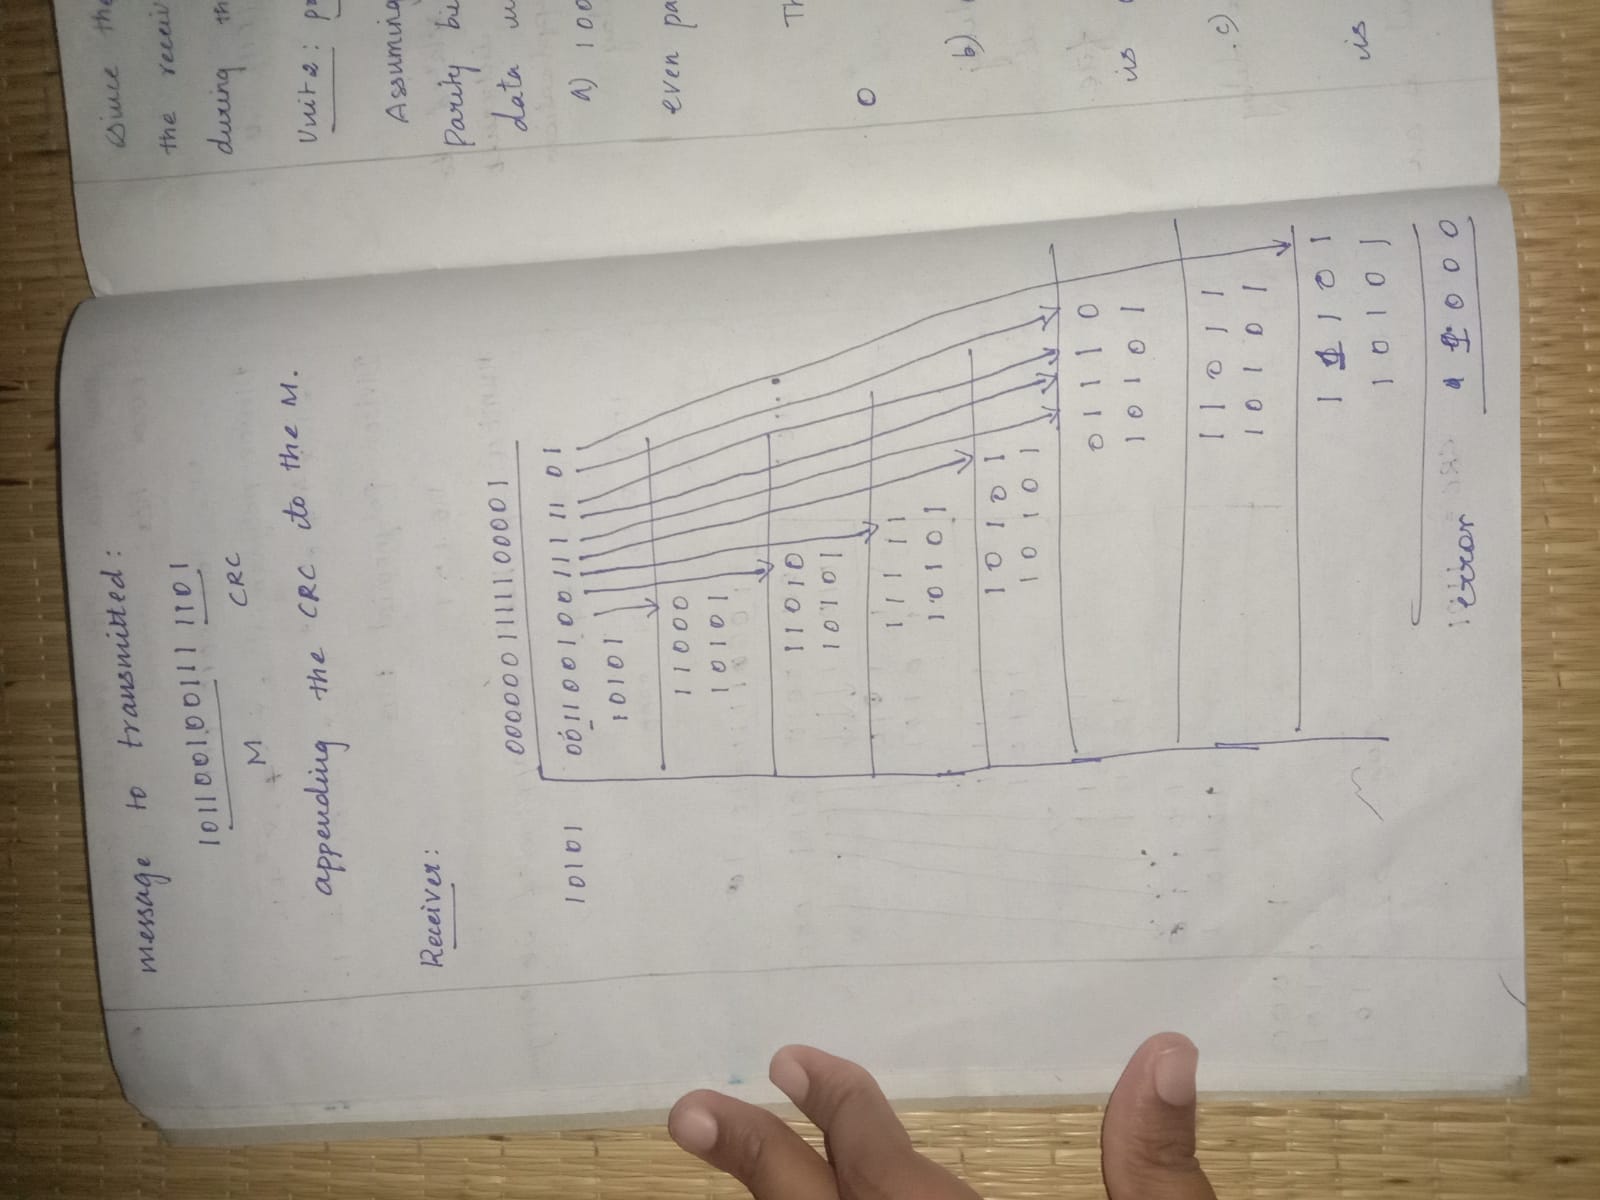 message to transmitted:
101100100111 1101
M CRC
appending the CRC to the M.
Receiver:
0000001111100001
10101
0011001001111101
10101
11000
10101
11010
10101
11111
10101
10101
10101
01110
10101
11011
10101
1 101
10101
error 000
since the
the receiv
during th
Unit 2: p
Assuming
Parity bi
data
a) 100
even pa
Th
0
b)
is
c)
is